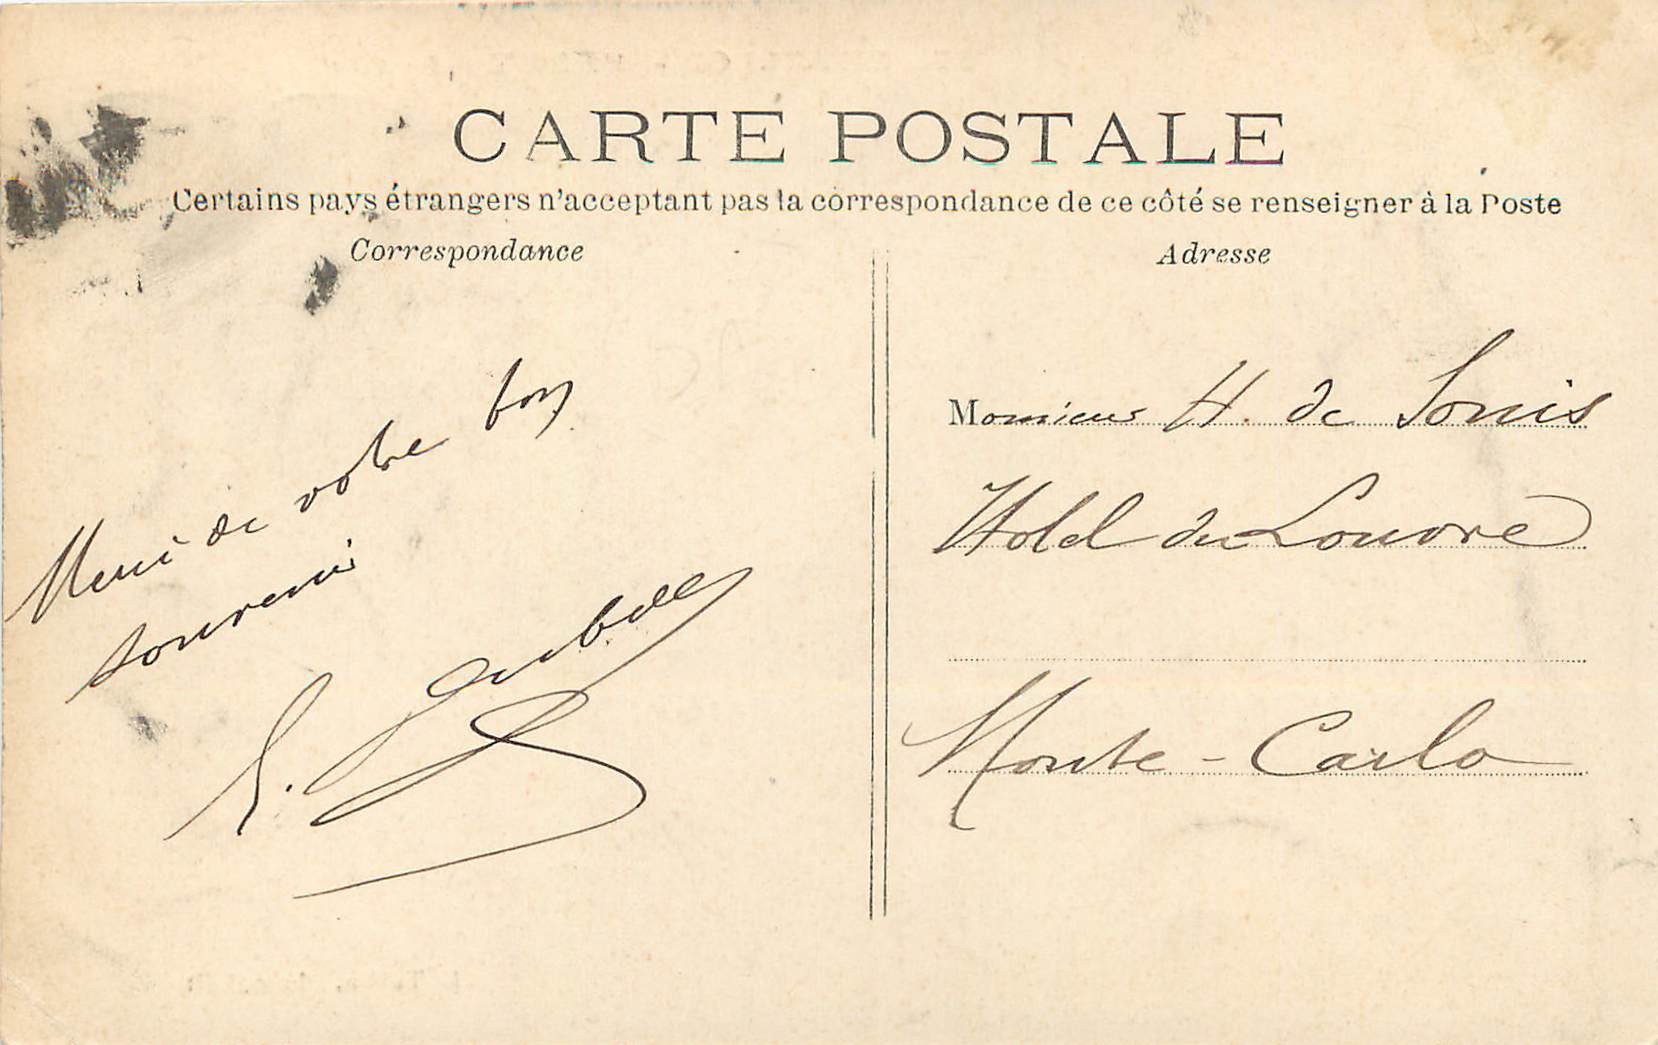 CARTE POSTALE
Certains pays étrangers n'acceptant pas la correspondance de ce côté se renseigner à la Poste
Correspondance
Adresse
Merci de votre bon
souvenir
Monsieur H. de Sonis
Hotel du Louvre
Monte-Carlo